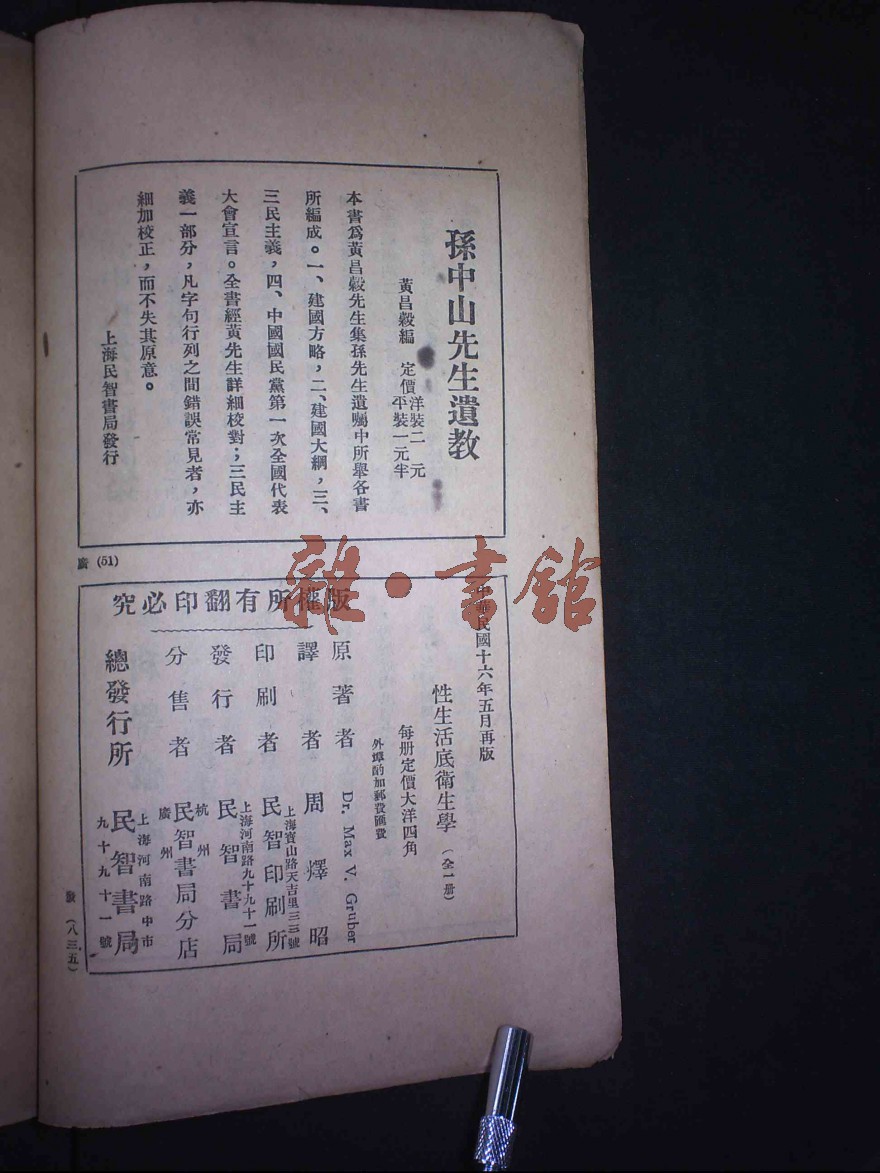 孫中山先生遺教
黃昌穀編 定價洋裝二元平裝一元半
本書爲黃昌穀先生集孫先生遺囑中所舉各書
所編成。一、建國方略,二、建國大綱,三、
三民主義,四、中國國民黨第一次全國代表
大會宣言。全書經黃先生詳細校對;三民主
義一部分,凡字句行列之間錯誤常見者,亦
細加校正,而不失其原意。
上海民智書局發行
廣 (51)
雜·書館
中華民國十六年五月再版
性生活底衛生學(全一册)
每册定價大洋四角
外埠酌加郵費匯費
版權所有翻印必究
原著者 Dr. Max V. Gruber
譯者 周燁昭
印刷者 民智印刷所 上海寶山路天吉里三三號
發行者 民智書局 上海河南路九十九十一號
分售者 民智書局分店 杭州 廣州
總發行所 民智書局 上海河南路中市 九十九十一號
(八三五)